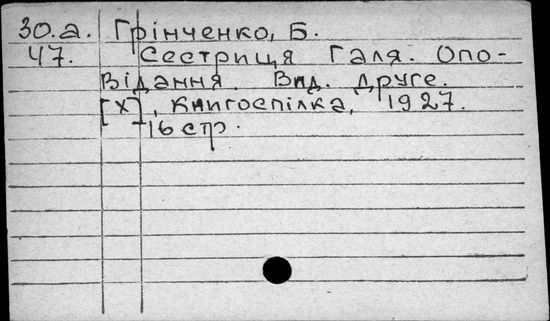 30.а. Грінченко, Б.
47. Сестриця Галя. Опо-
відання. Вид. друге.
[Х], Книгоспілка, 1927.
16 стр.